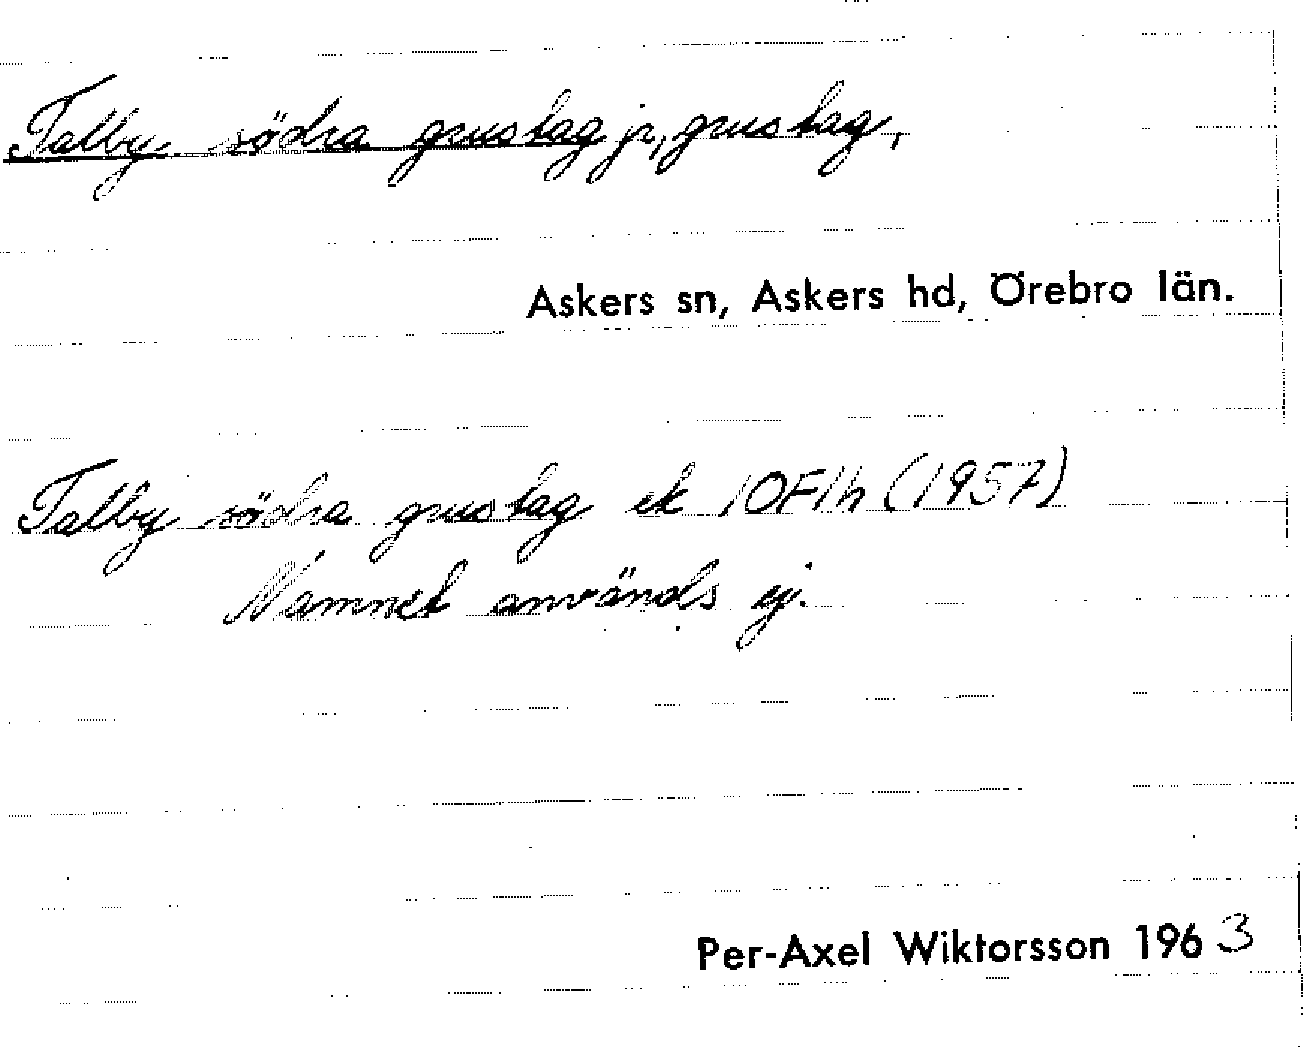 Talby södra grustag jr, grustag,
Askers sn, Askers hd, Örebro län.
Talby södra grustag ek 10F1h (1957)
Namnet används ej.
Per-Axel Wiktorsson 1963